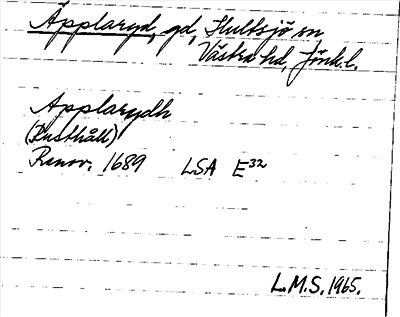 Äpplaryd, gd, Hultsjö sn
Västra hd, Jönk. l.
Applarydh
(Rusthåll)
Renov. 1689 LSA E32
L.M.S. 1965.